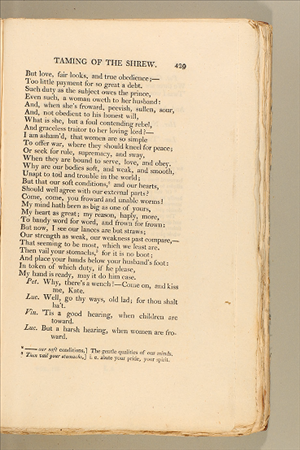 TAMING OF THE SHREW. 429
But love, fair looks, and true obedience;—
Too little payment for so great a debt.
Such duty as the subject owes the prince,
Even such, a woman oweth to her husband:
And, when she's froward, peevish, sullen, sour,
And, not obedient to his honest will,
What is she, but a foul contending rebel,
And graceless traitor to her loving lord?—
I am asham'd, that women are so simple
To offer war, where they should kneel for peace;
Or seek for rule, supremacy, and sway,
When they are bound to serve, love, and obey.
Why are our bodies soft, and weak, and smooth,
Unapt to toil and trouble in the world;
But that our soft conditions, and our hearts,
Should well agree with our external parts?
Come, come, you froward and unable worms!
My mind hath been as big as one of yours,
My heart as great; my reason, haply, more,
To bandy word for word, and frown for frown:
But now, I see our lances are but straws;
Our strength as weak, our weakness past compare,—
That seeming to be most, which we least are.
Then vail your stomachs, for it is no boot;
And place your hands below your husband's foot:
In token of which duty, if he please,
My hand is ready, may it do him ease.
Pet. Why, there's a wench!—Come on, and kiss
me, Kate.
Luc. Well, go thy ways, old lad; for thou shalt
ha't.
Vin. 'Tis a good hearing, when children are
toward.
Luc. But a harsh hearing, when women are fro-
ward.
—— our soft conditions,] The gentle qualities of our minds.
Then vail your stomachs,] i. e. abate your pride, your spirit.